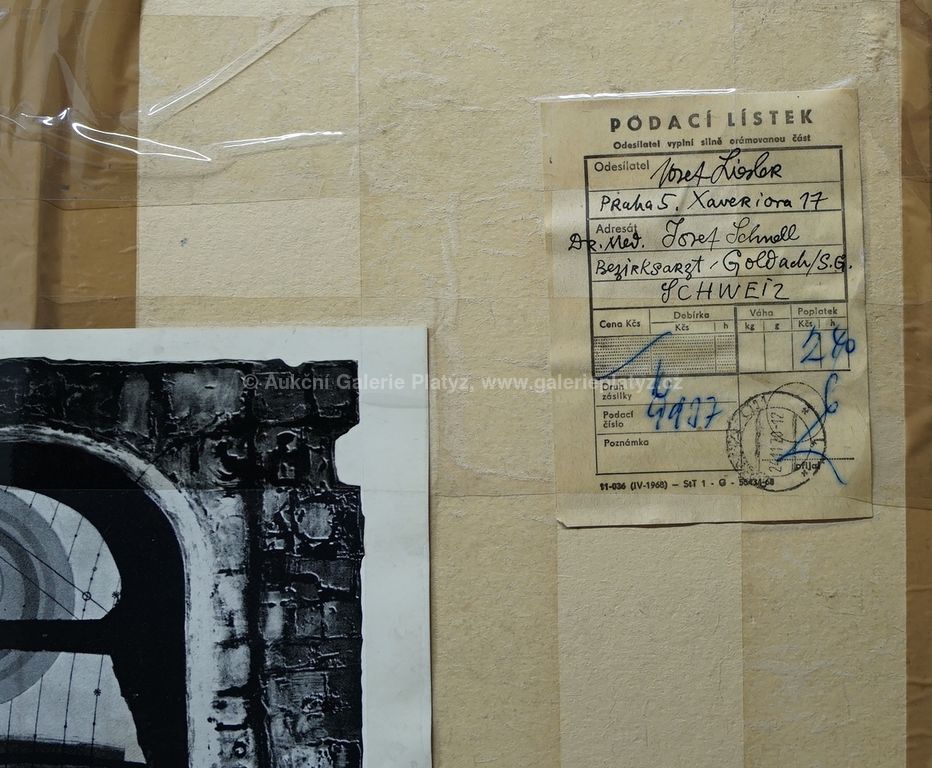 PODACÍ LÍSTEK
Odesílatel vyplní silně orámovanou část
Odesílatel Josef Liesler
PRaha 5. XaveRiova 17
Adresát
DR. Med. Josef Schnell
BeziRksaRzt, Goldach/S.G.
SCHWEIZ
Cena Kčs Dobírka Váha Poplatek
Kčs h kg g Kčs h
2 40
© Aukční Galerie Platýz, www.galerieplatyz.cz
Druh zásilky
Podací číslo
Poznámka
přijal
11-036 (IV-1968) — StT 1 - G -